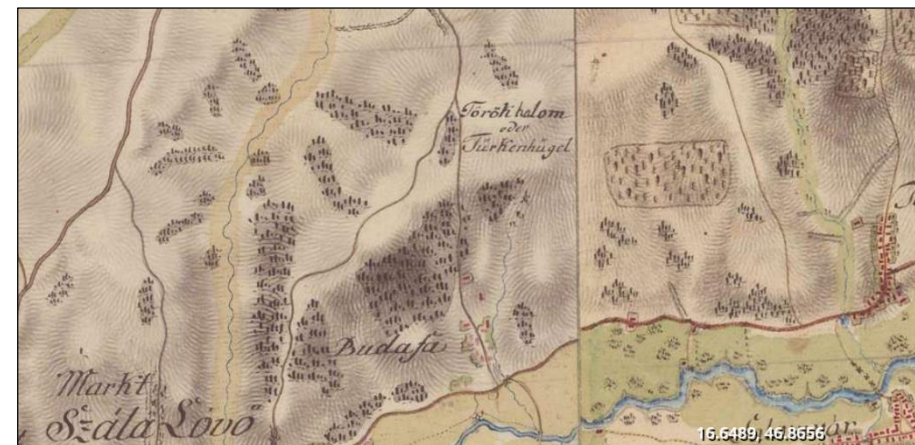 Törökhalom
oder
Türkenhügel
Budafa
Markt
Szála Lövö
16.6489, 46.8656